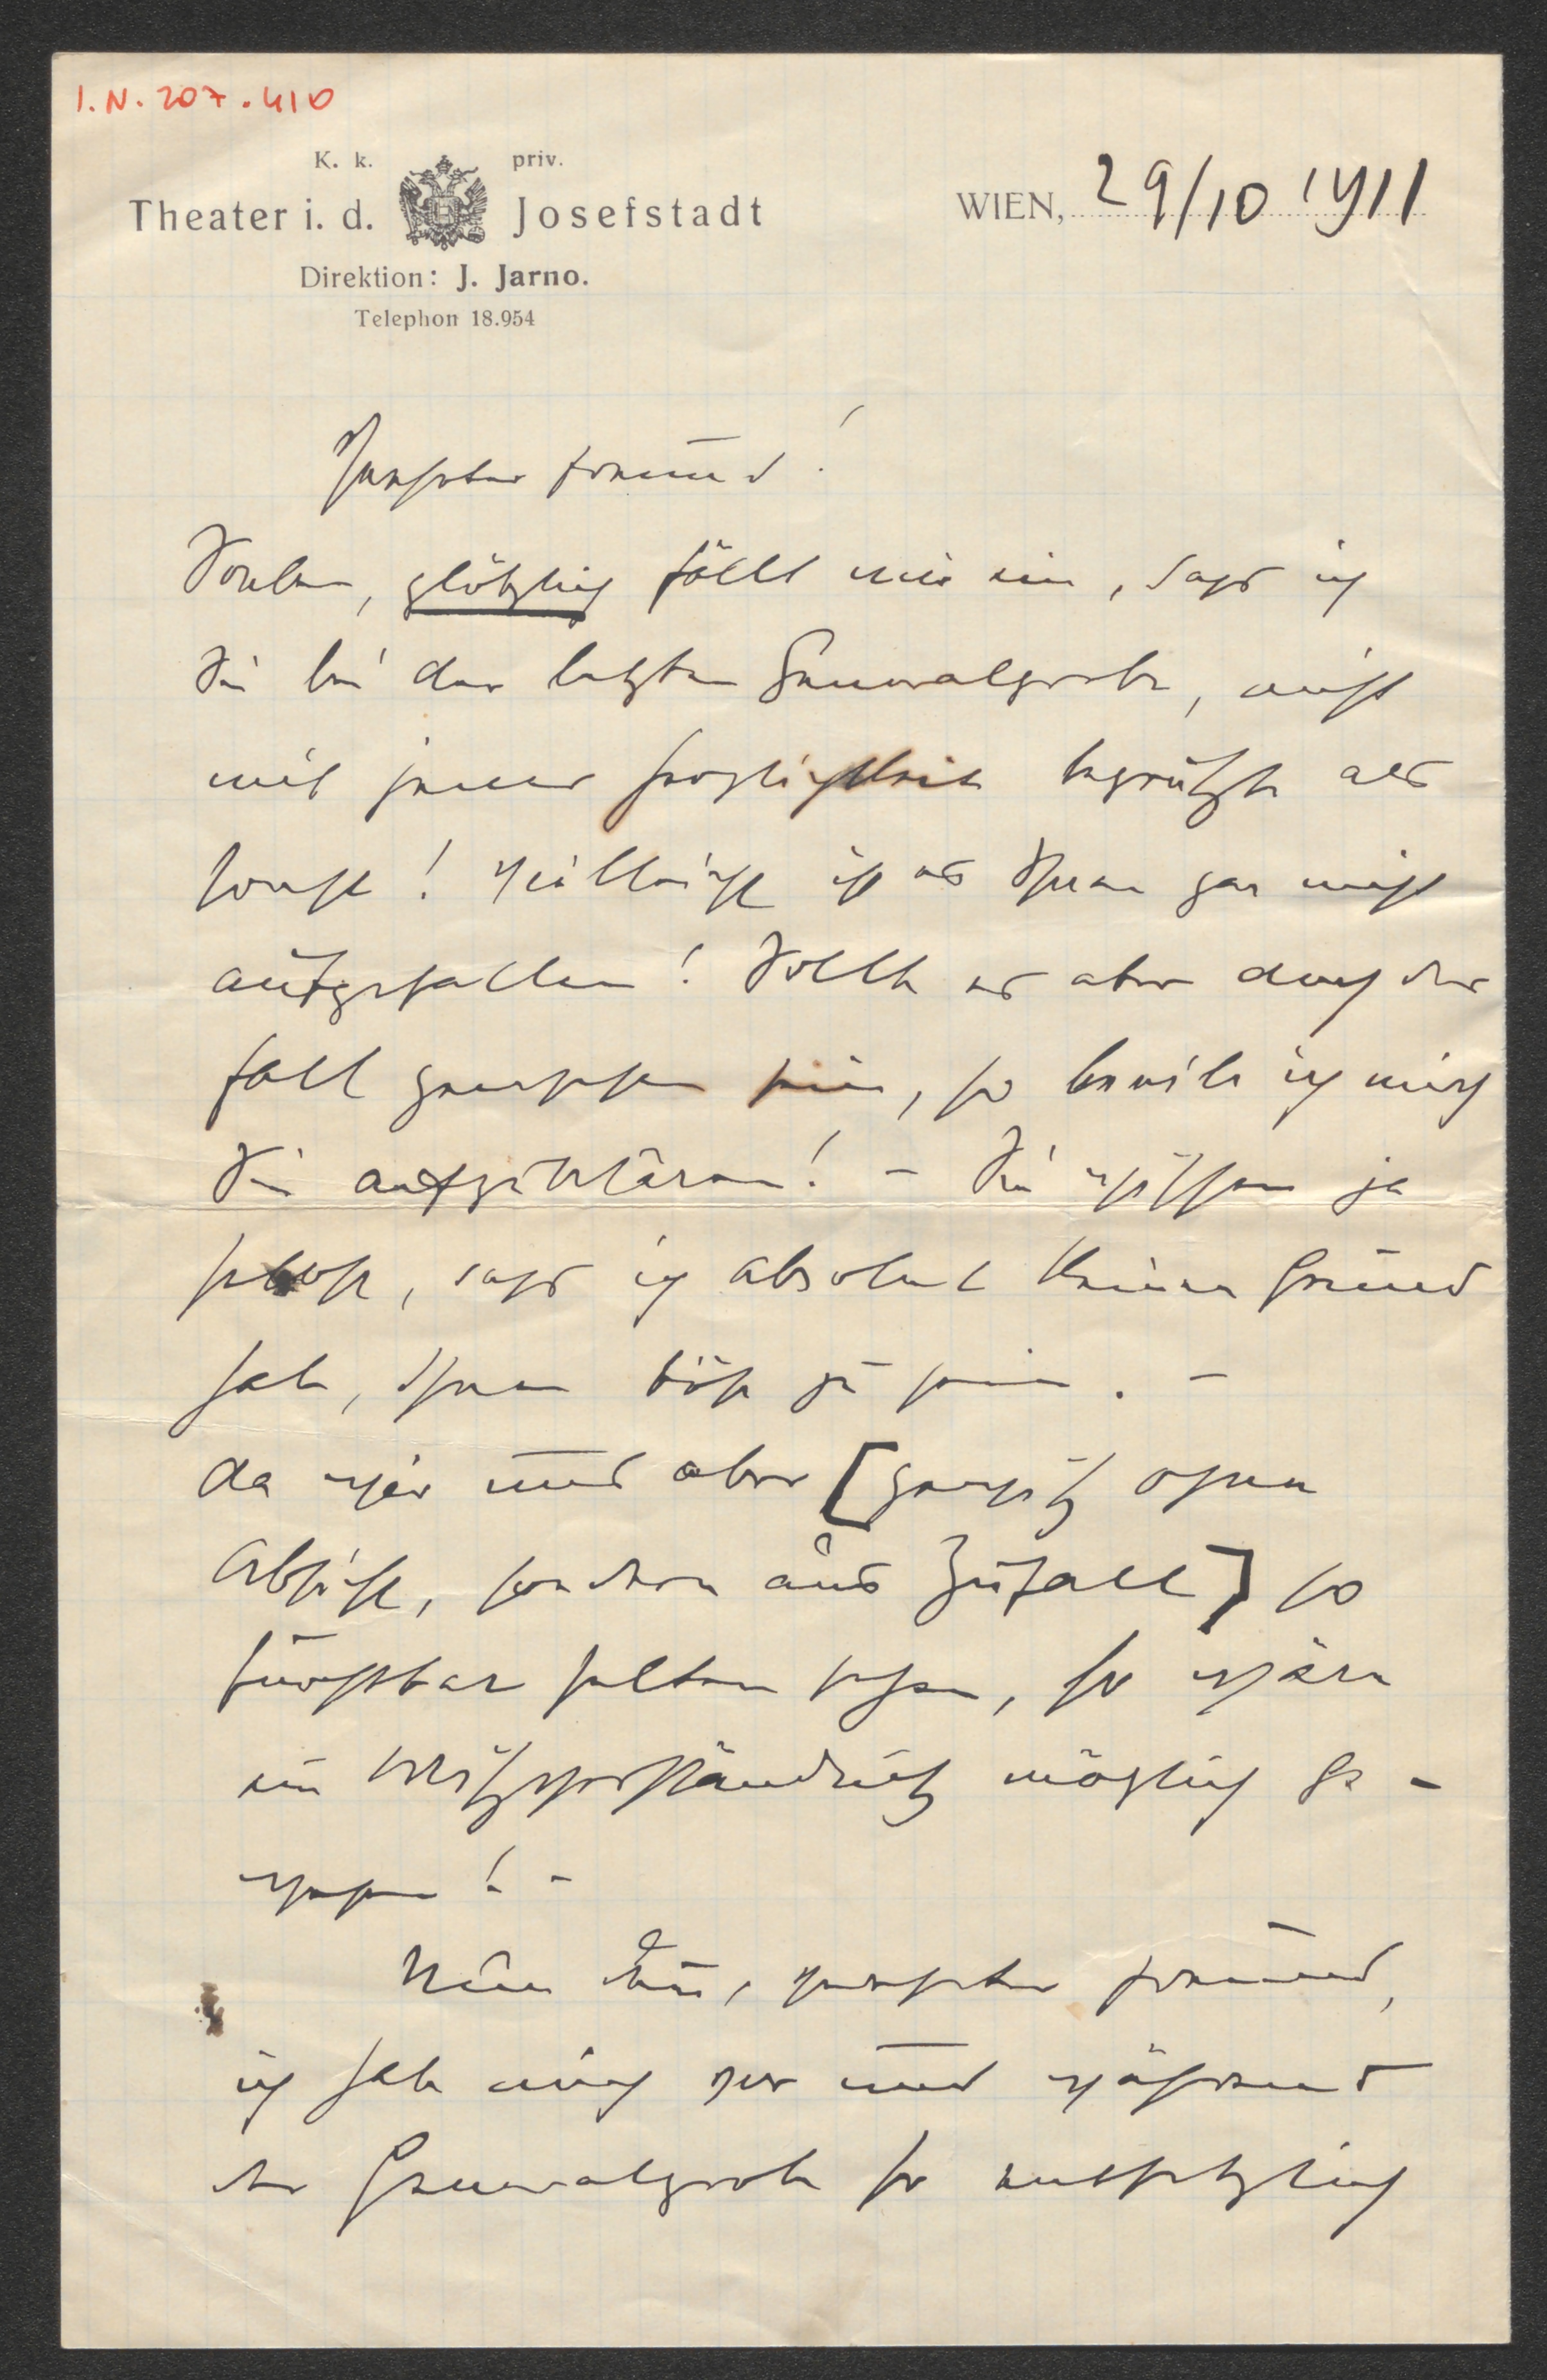 I.N. 207.410
K. k. priv.
Theater i. d. Josefstadt
Direktion: J. Jarno.
Telephon 18.954
WIEN, 29/10 1911
Verehrter Freund!
Soeben, plötzlich fällt mir ein, dass ich
Sie bei der letzten Generalprobe, nicht
mit jener Herzlichkeit begrüßte als
sonst! Vielleicht ist es Ihnen gar nicht
aufgefallen! Sollte es aber doch der
Fall gewesen sein, so beeile ich mich
Sie aufzuklären! – Sie wissen ja
selbst, dass ich absolut keinen Grund
habe, Ihnen böse zu sein. –
da wir uns aber [gewiß ohne
Absicht, sondern aus Zufall] so
furchtbar selten sehen, so wäre
ein Mißverständniß möglich ge-
wesen! –
Nun verehrter Freund,
ich habe mich vor und während
der Generalprobe so entsetzlich